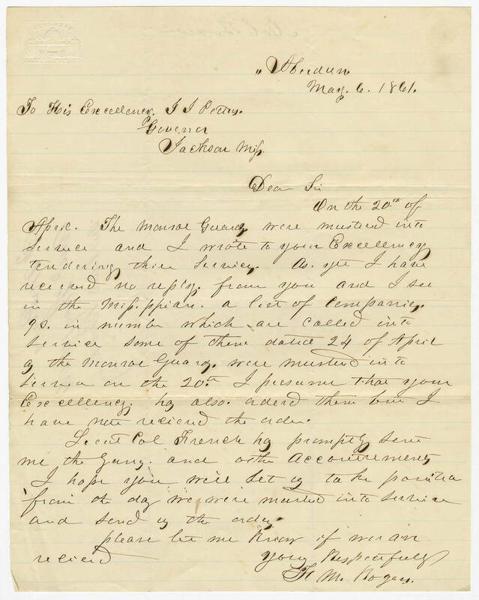 Aberdeen
May. 6. 1861.
To His Excellency J J Pettus.
Govenor
Jackson Miss
Dear Sir
On the 20th of
April. The Monroe Guards were mustered into
Service and I wrote to your Excellency
tendering their Services. As yet I have
received no reply from you and I see
in the Missippian. a list of Companies
in number which are called into
Service some of them dated 24 of April
as the Monroe Guards were mustered into
Service on the 20th I presume that your
Excellency has also. orderd them but I
have not reciend the order.
Lieut Col French has promptly sent
me the Guns. and other Accoutrements
I hope you will let us to the position
from the day we were musterd into Service
and send us the order
please let me know if we are
reciend your Respectfully
M. Rogers.